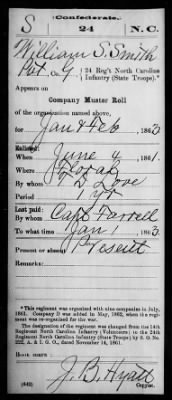 Confederate.
S 24 N.C.
William S. Smith
Pvt. Co. G, 24 Reg't North Carolina
Infantry (State Troops).*
Appears on
Company Muster Roll
of the organization named above,
for Jan & Feb, 1863
Enlisted:
When June 4, 1861.
Where
By whom D Love
Period 1 yr
Last paid:
By whom Capt Farrell
To what time Jan 1, 1863
Present or absent Present
Remarks:
*This regiment was organized with nine companies in July,
1861. Company D was added in May, 1862, when the regi-
ment was re-organized for the war.
The designation of the regiment was changed from the 14th
Regiment North Carolina Infantry (Volunteers) to the 24th
Regiment North Carolina Infantry (State Troops) by S. O. No.
222, A. & I. G. O., dated November 14, 1861.
Book mark:
J. B. Hyatt
(642) Copyist.